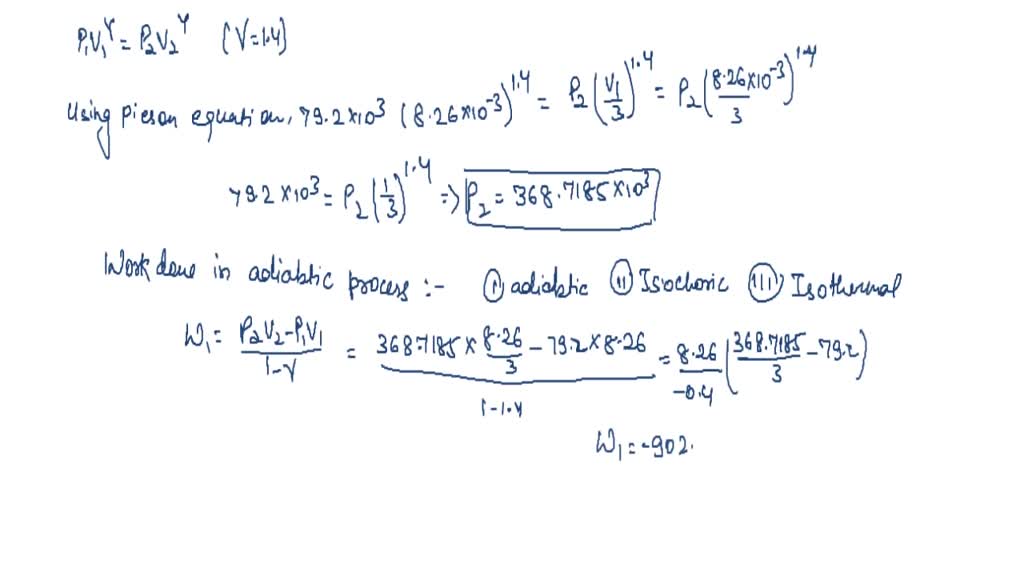 P₁V₁^γ = P₂V₂^γ (γ=1.4)
Using pieson equation, 79.2×10³ (8.26×10⁻³)^1.4 = P₂(V₁/3)^1.4 = P₂(8.26×10⁻³/3)^1.4
79.2×10³ = P₂(1/3)^1.4 ⇒ P₂ = 368.7185×10³
Work done in adiabtic process :- (i) adiabtic (ii) Isochoric (iii) Isothermal
W₁ = P₂V₂-P₁V₁/1-γ = 368.7185×8.26/3 - 79.2×8.26/1-1.4 = 8.26/-0.4 (368.7185/3 - 79.2)
W₁ = -902.